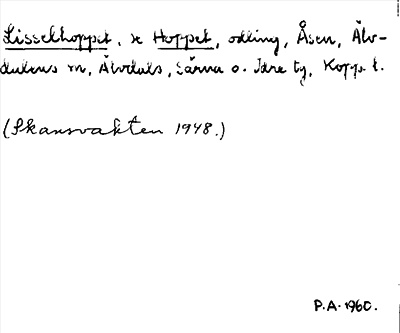 Lisselhoppet, se Hoppet, odling, Åsen, Älv-
dalens sn, Älvdals, Särna o. Idre tg, Kopp. l.
(Skansvakten 1948.)
P.A. 1960.